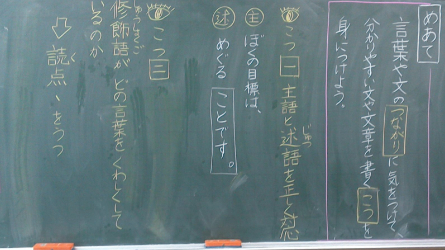 めあて
言葉や文のつながりに気をつけて、
分かりやすい文や文章を書くこつを
身につけよう。
こつ一 主語と述語を正しく対応
じゅつ
主 ぼくの目標は、
述 めぐる ことです。
こつ二
修飾語が どの言葉をくわしくして
しゅうしょくご
いるのか
⇩ 読点、をうつ